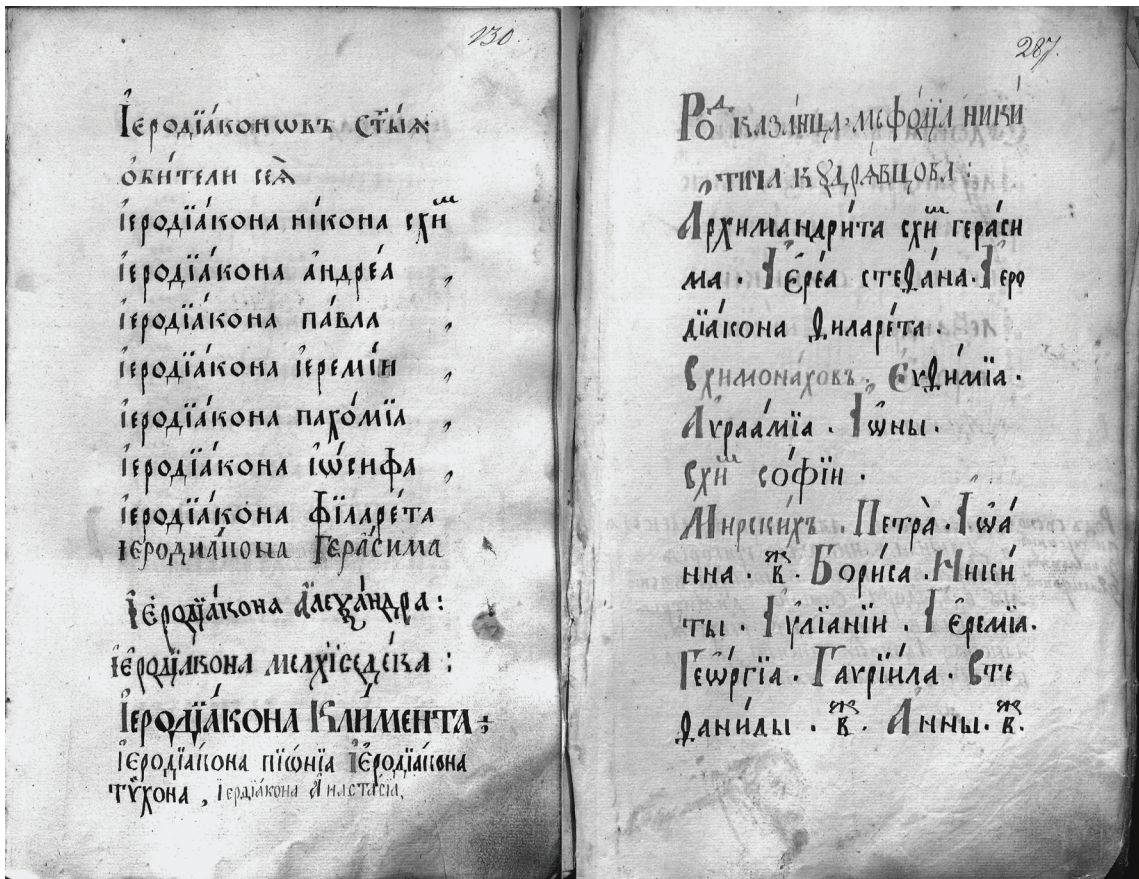 130.
Іеродїа́конѡвъ ст҃ы́ѧ
ѡби́тели сеѧ̀
іеродїа́кона ні́кона схи҆ⷨ
іеродїа́кона а҆ндре́а ,
іеродїа́кона па́вла ,
іеродїа́кона і҆еремі́и ,
іеродїа́кона пахо́мїа ,
іеродїа́кона і҆ѡ́сифа ,
іеродїа́кона фїларе́та
іеродиа́кона Гера́сима
Іеродїа́кона Алеѯа́ндра :
іеродїа́кона мелхїседе́ка :
Іеродїа́кона Кли́мента ;
іеродїа́кона пїѡ́нїа іеродїа́кона
тѷ́хона , іердїа́кона Анаста́сїа,
287.
Роⷣ каза́нца. меѳо́дїа ники́
тича кꙋдрѧ́вцова :
Архимандри́та схиⷨ гера́си
ма . Іере́а стефа́на . Іеро
дїа́кона филаре́та .
Схимона́ховъ . Еѵфи́мїа .
Аѵраа́мїа . Іѡ́ны .
Схиⷨ софі́и .
Мирски́хъ . Петра̀ . Іѡа́
нна . в҃ⷤ . Бори́са . Ники́
ты . Іѵлїані́и . Іеремі́а .
Геѡ́ргїа . Гаврїи́ла . Сте
фани́ды . в҃ⷤ . А́нны . в҃ⷤ .